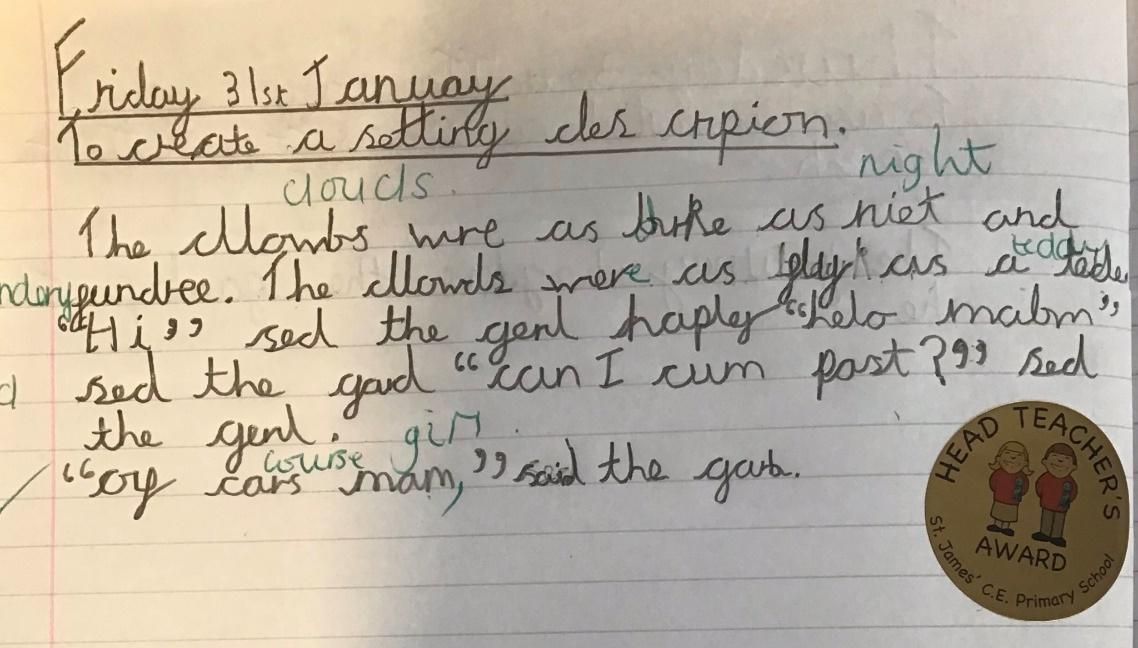 Friday 31st Januay
To create a setting des cripion.
clouds. night
The cllowbs wre as as niet and
teddy
pundree. The cllowds were as as a
"Hi" sed the genl haply "helo mabm"
sed the gad "can I cum past?" sed
the genl. girl.
course
"of cars mam," said the garb.
HEAD TEACHER'S
AWARD
St. James' C.E. Primary School